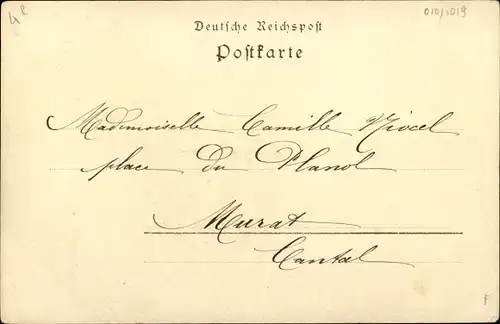 010/1019
Deutsche Reichspost
Postkarte
Mademoiselle Camille
place du Planol
Murat
Cantal